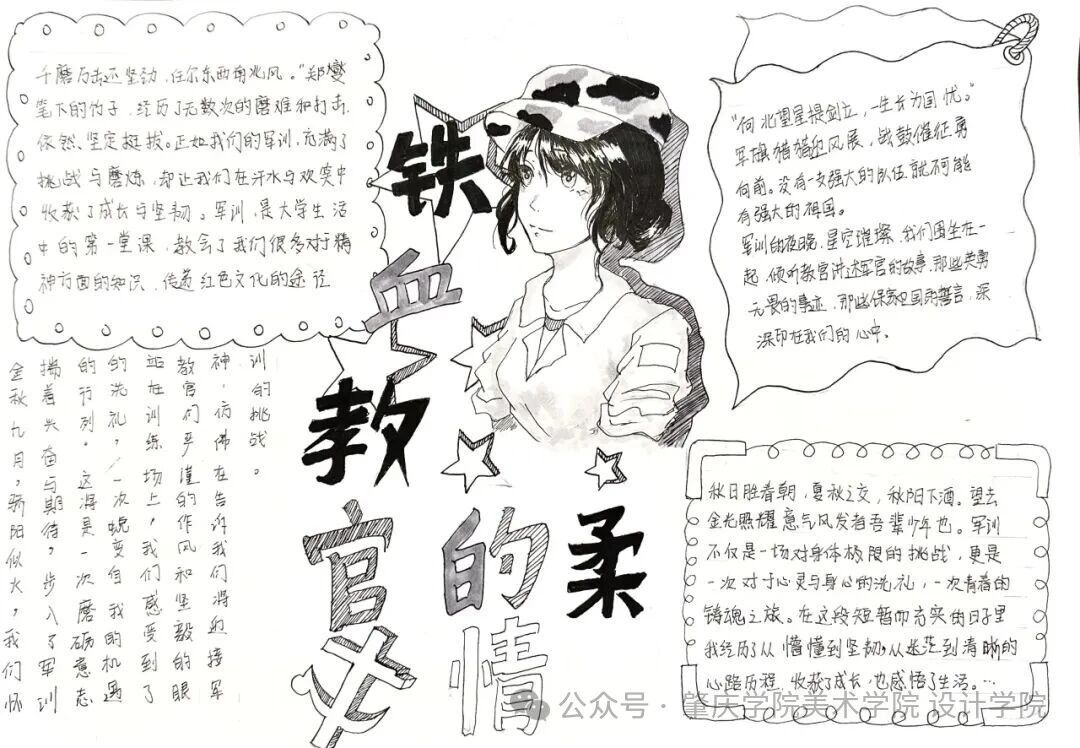 千磨万击还坚劲，任尔东西南北风。"郑燮
笔下的竹子，经历了无数次的磨难和打击，
依然、坚定挺拔。正如我们的军训，充满了
挑战与磨炼，却让我们在汗水与欢笑中
收获了成长与坚韧。军训，是大学生活
中的第一堂课，教会了我们很多对于精
神方面的知识，传递红色文化的途径
铁血教官的柔情
"向北望星提剑立，一生长为国忧。"
军旗猎猎迎风展，战鼓催征勇
向前。没有一支强大的队伍就不可能
有强大的祖国。
军训的夜晚，星空璀璨，我们围坐在一
起，倾听教官讲述军官的故事，那些英勇
无畏的事迹，那些保家卫国的誓言，深
深印在我们的心中。
金秋九月，骄阳似火，我们怀
揣着兴奋与期待，步入了军训
的行列。这将是一次磨砺意志
的洗礼，一次蜕变自我的机遇
站在训练场上，我们感受到了
教官们严谨的作风和坚毅的眼
神，仿佛在告诉我们将迎接军
训的挑战。
秋日胜春朝，夏秋之交，秋阳下洒。望去
金光照耀意气风发者吾辈少年也。军训
不仅是一场对身体极限的挑战，更是
一次对于心灵与身心的洗礼，一次青春的
铸魂之旅。在这段短暂而充实的日子里
我经历了从懵懂到坚韧，从迷茫到清晰的
心路历程，收获了成长，也感悟了生活。…
公众号·肇庆学院美术学院 设计学院